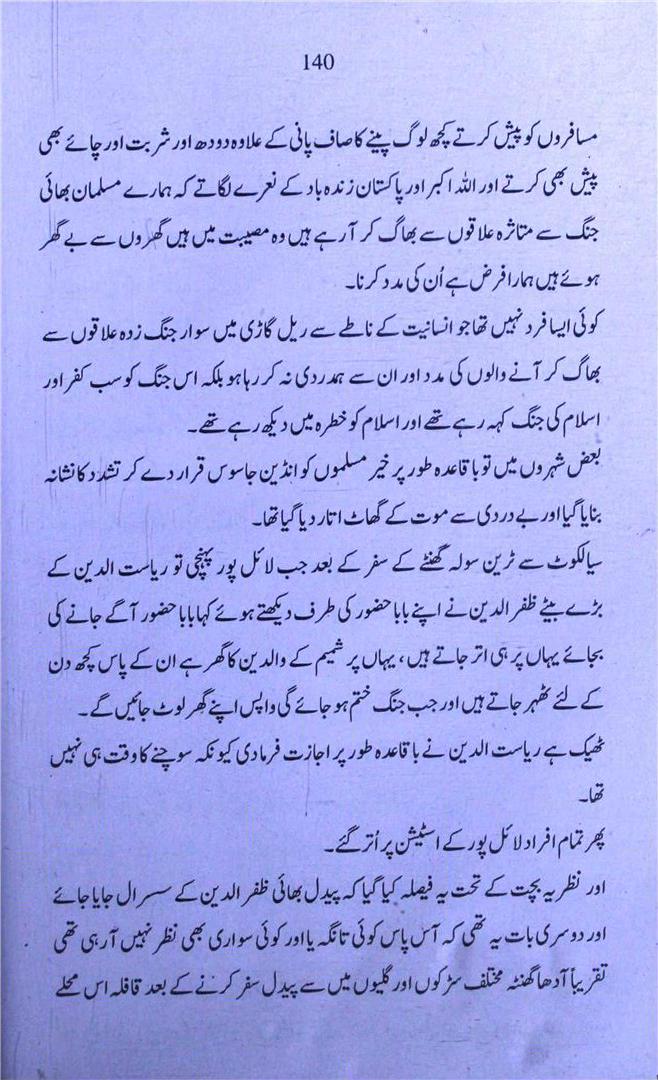 140
مسافروں کو پیش کرتے کچھ لوگ پینے کا صاف پانی کے علاوہ دودھ اور شربت اور چائے بھی
پیش بھی کرتے اور اللہ اکبر اور پاکستان زندہ باد کے نعرے لگاتے کہ ہمارے مسلمان بھائی
جنگ سے متاثرہ علاقوں سے بھاگ کر آ رہے ہیں وہ مصیبت میں ہیں گھروں سے بے گھر
ہوئے ہیں ہمارا فرض ہے اُن کی مدد کرنا۔
کوئی ایسا فرد نہیں تھا جو انسانیت کے ناطے سے ریل گاڑی میں سوار جنگ زدہ علاقوں سے
بھاگ کر آنے والوں کی مدد اور ان سے ہمدردی نہ کر رہا ہو بلکہ اس جنگ کو سب کفر اور
اسلام کی جنگ کہہ رہے تھے اور اسلام کو خطرہ میں دیکھ رہے تھے۔
بعض شہروں میں تو باقاعدہ طور پر خیر مسلموں کو انڈین جاسوس قرار دے کر تشدد کا نشانہ
بنایا گیا اور بے دردی سے موت کے گھاٹ اتار دیا گیا تھا۔
سیالکوٹ سے ٹرین سولہ گھنٹے کے سفر کے بعد جب لائل پور پہنچی تو ریاست الدین کے
بڑے بیٹے ظفر الدین نے اپنے بابا حضور کی طرف دیکھتے ہوئے کہا بابا حضور آگے جانے کی
بجائے یہاں پر ہی اتر جاتے ہیں، یہاں پر شمیم کے والدین کا گھر ہے ان کے پاس کچھ دن
کے لئے ٹھہر جاتے ہیں اور جب جنگ ختم ہو جائے گی واپس اپنے گھر لوٹ جائیں گے۔
ٹھیک ہے ریاست الدین نے باقاعدہ طور پر اجازت فرما دی کیونکہ سوچنے کا وقت ہی نہیں
تھا۔
پھر تمام افراد لائل پور کے اسٹیشن پر اُتر گئے۔
اور نظریہ بچت کے تحت یہ فیصلہ کیا گیا کہ پیدل بھائی ظفر الدین کے سسرال جایا جائے
اور دوسری بات یہ تھی کہ آس پاس کوئی تانگہ یا اور کوئی سواری بھی نظر نہیں آ رہی تھی
تقریباً آدھا گھنٹہ مختلف سڑکوں اور گلیوں میں سے پیدل سفر کرنے کے بعد قافلہ اس محلے